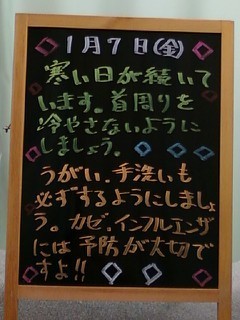 1月7日(金)
寒い日が続いて
います。首周りを
冷やさないように
しましょう。
うがい、手洗いも
必ずするようにしましょ
う。カゼ、インフルエンザ
には予防が大切で
すよ!!